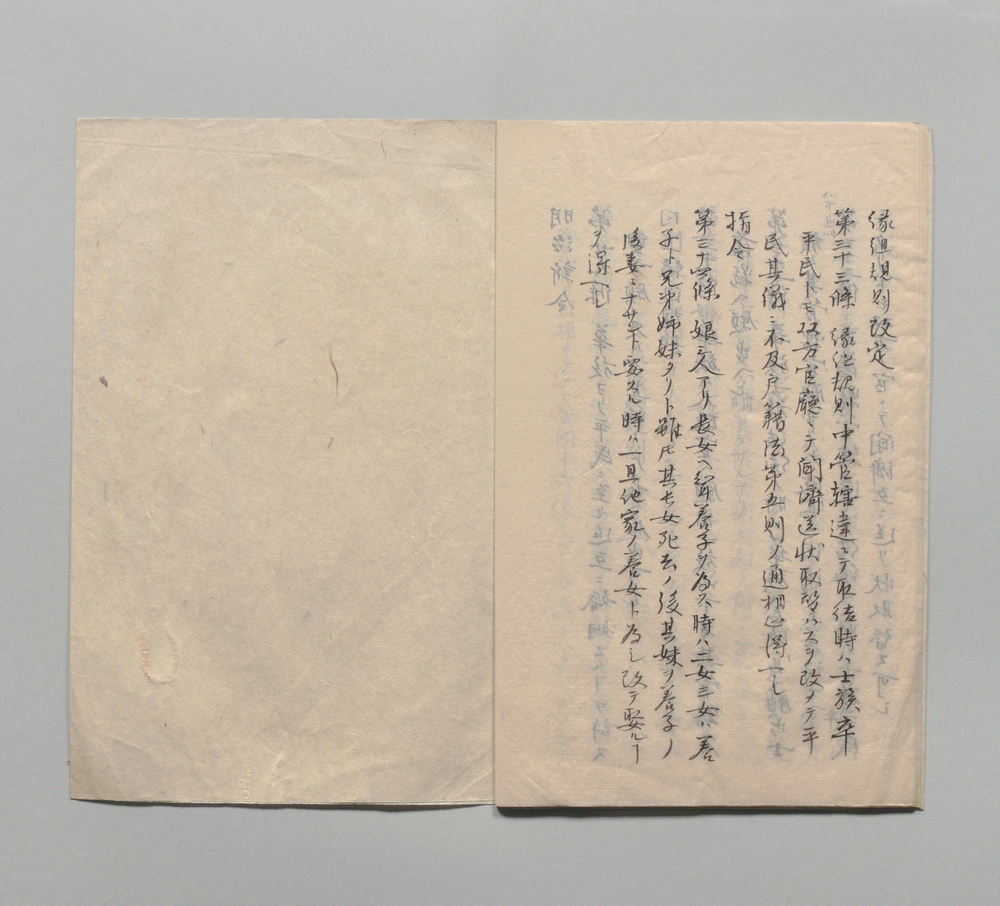 縁組規則改定
第三十三條 縁組規則中管轄違ニテ取結時ハ士族卒
平民トモ双方官廳ニテ聞濟送状取替ハスヲ改メテ平
民其儀ニ不及戸籍法第五則ノ通相心得ヘシ
指令
第三十四條 娘三人アリ長女ヘ聟養子ヲ為ス時ハ二女三女ハ養
子ト兄弟姉妹タリト雖圧其長女死去ノ後其妹ヲ養子ノ
後妻ニナサント要スル時ハ一旦他家ノ養女ト為シ改テ娶ルヿ
ヲ得ヘシ